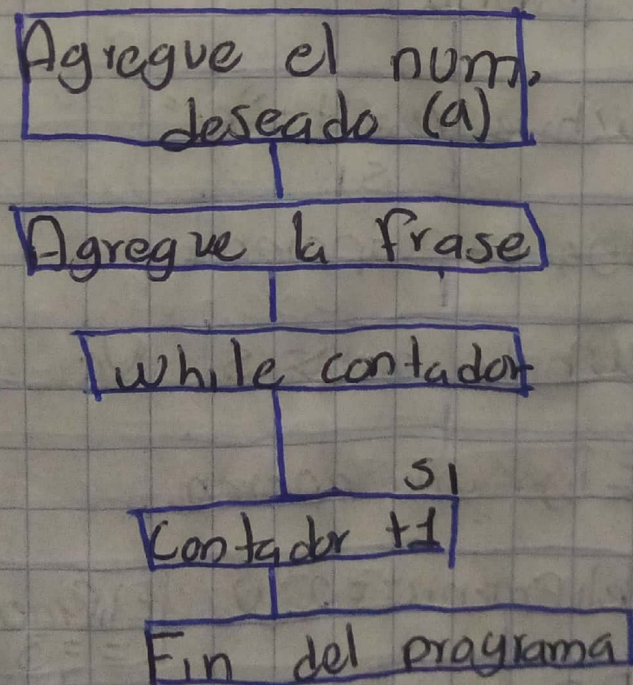 Agregue el num.
deseado (a)
Agregue la frase
while contador
SI
Contador +1
Fin del programa